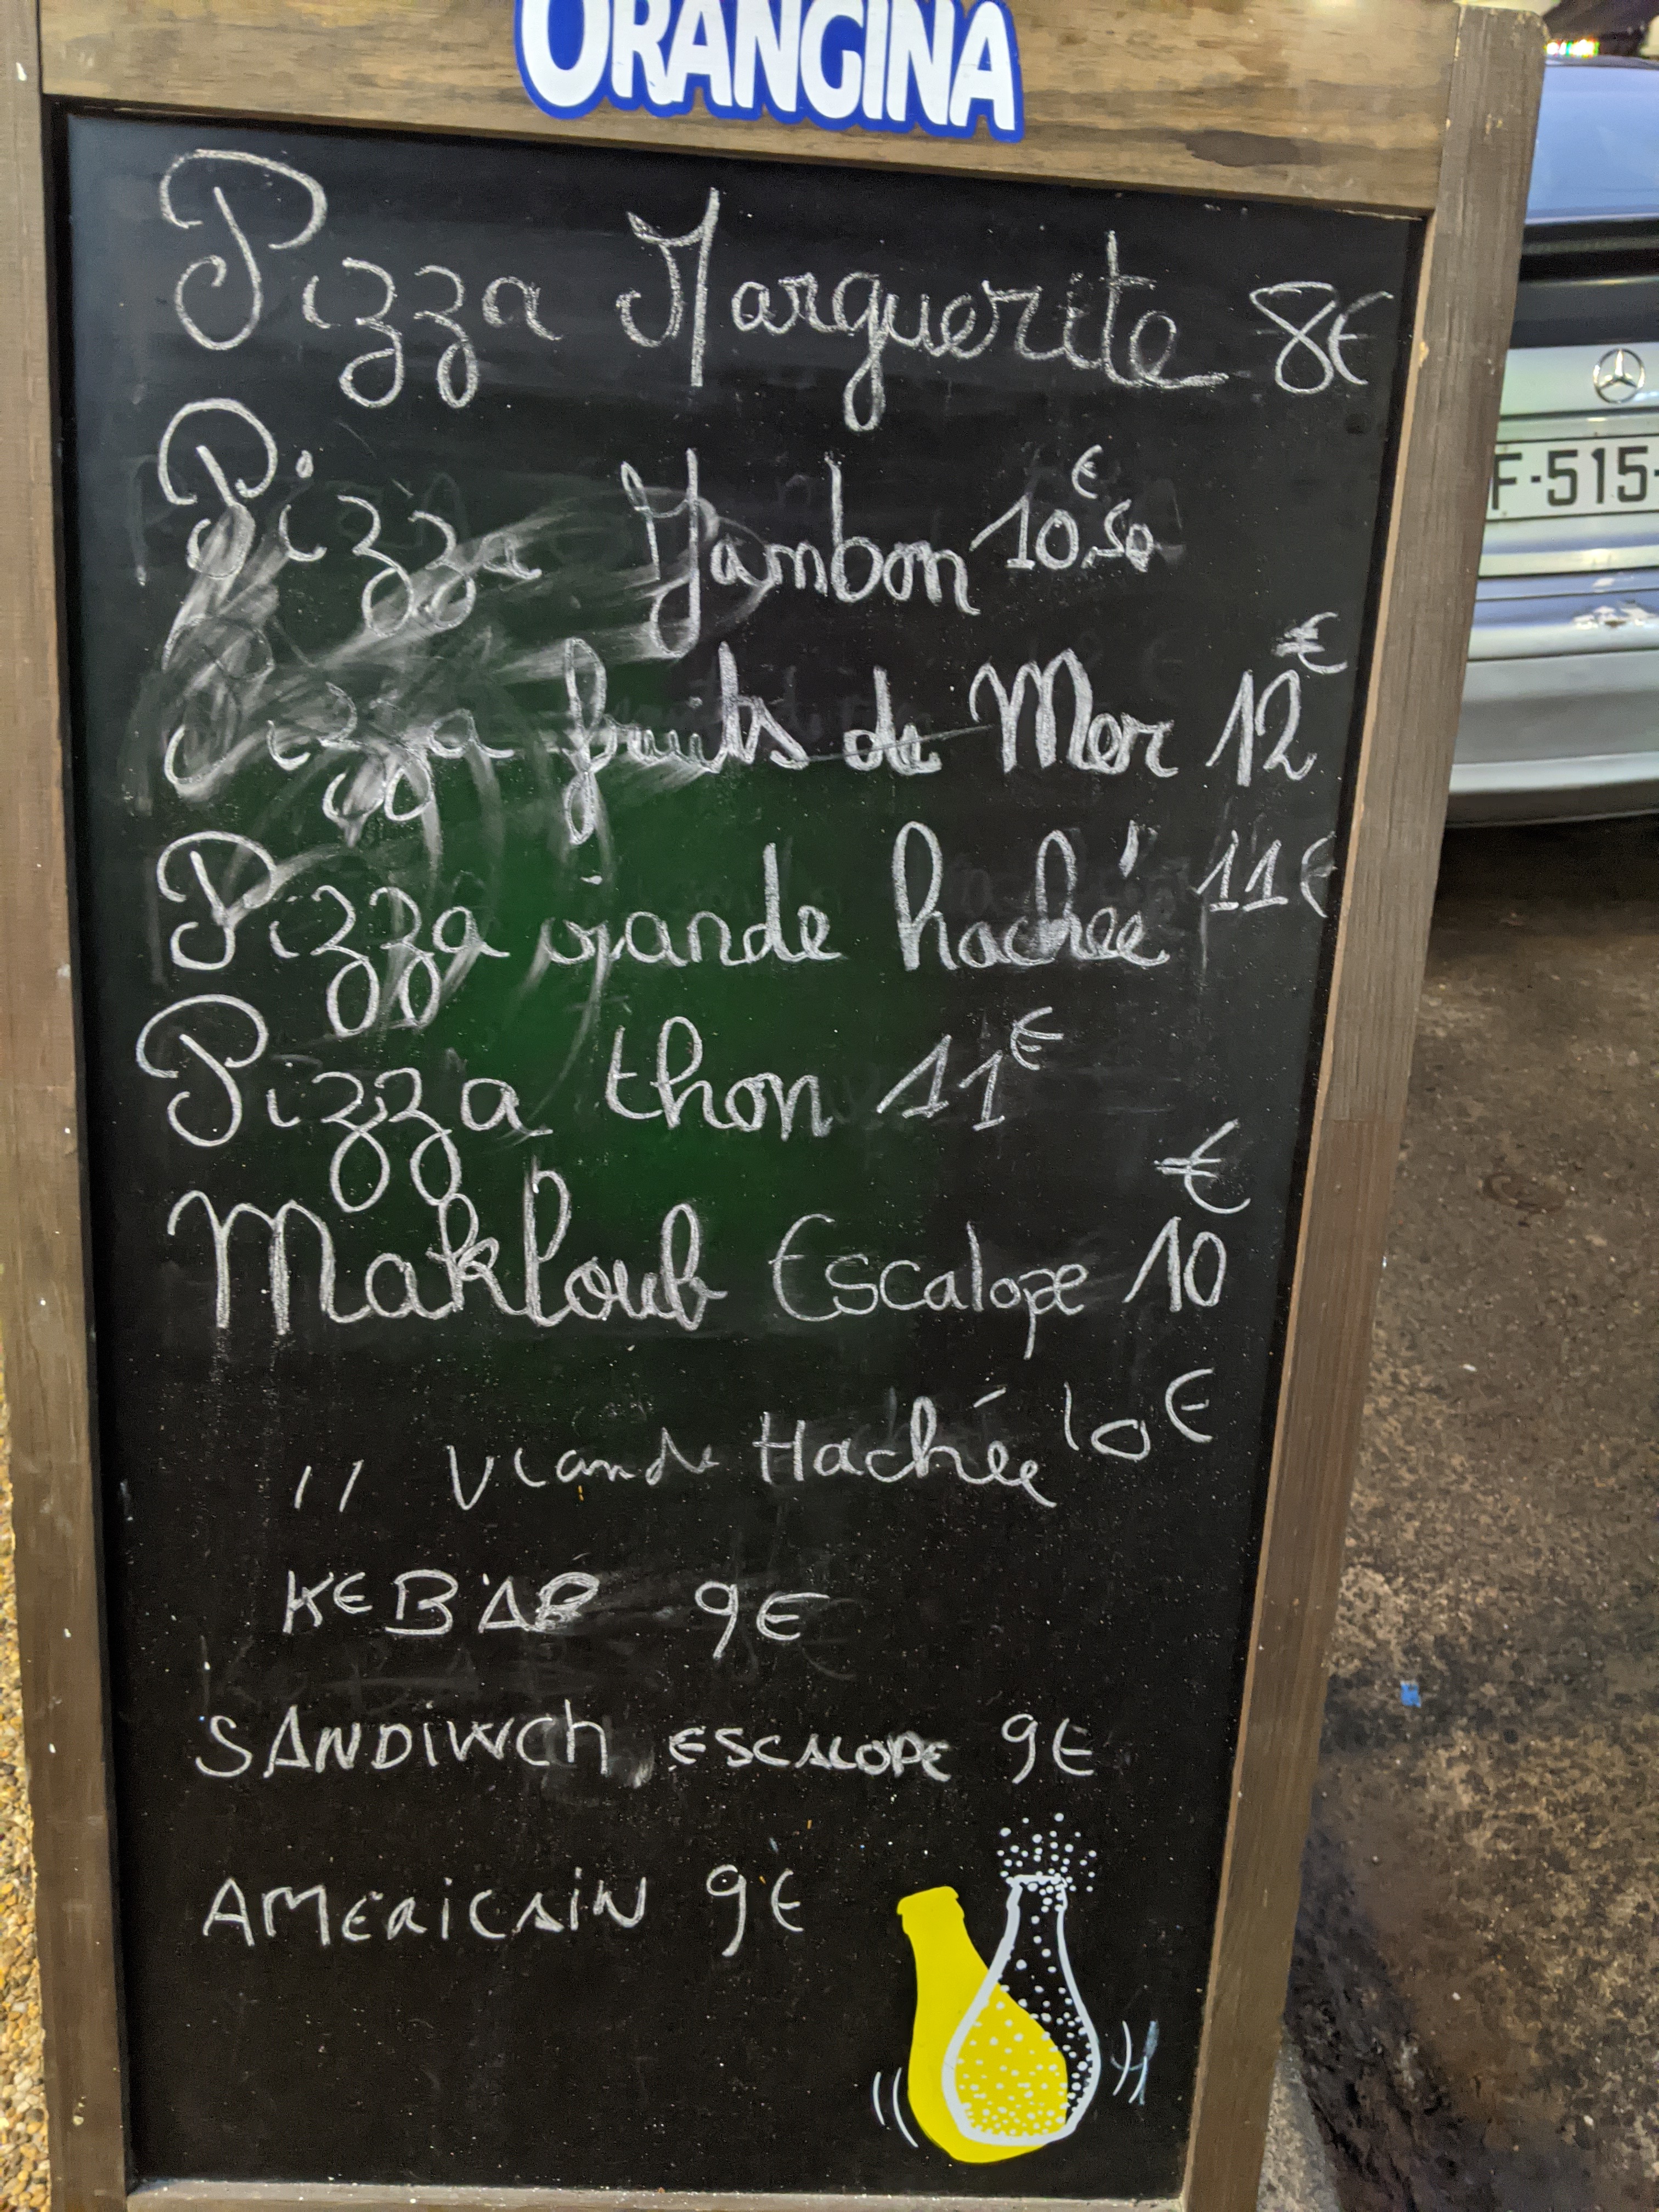 ORANGINA
Pizza Marguerite 8€
Pizza Jambon 10€.50
Pizza fruits de Mer 12€
Pizza viande hachée 11€
Pizza thon 11€
Makloub Escalope 10€
" Viande Hachée 10€
KEBAB 9€
SANDIWCh ESCALOPE 9€
AMERICAIN 9€
F-515-